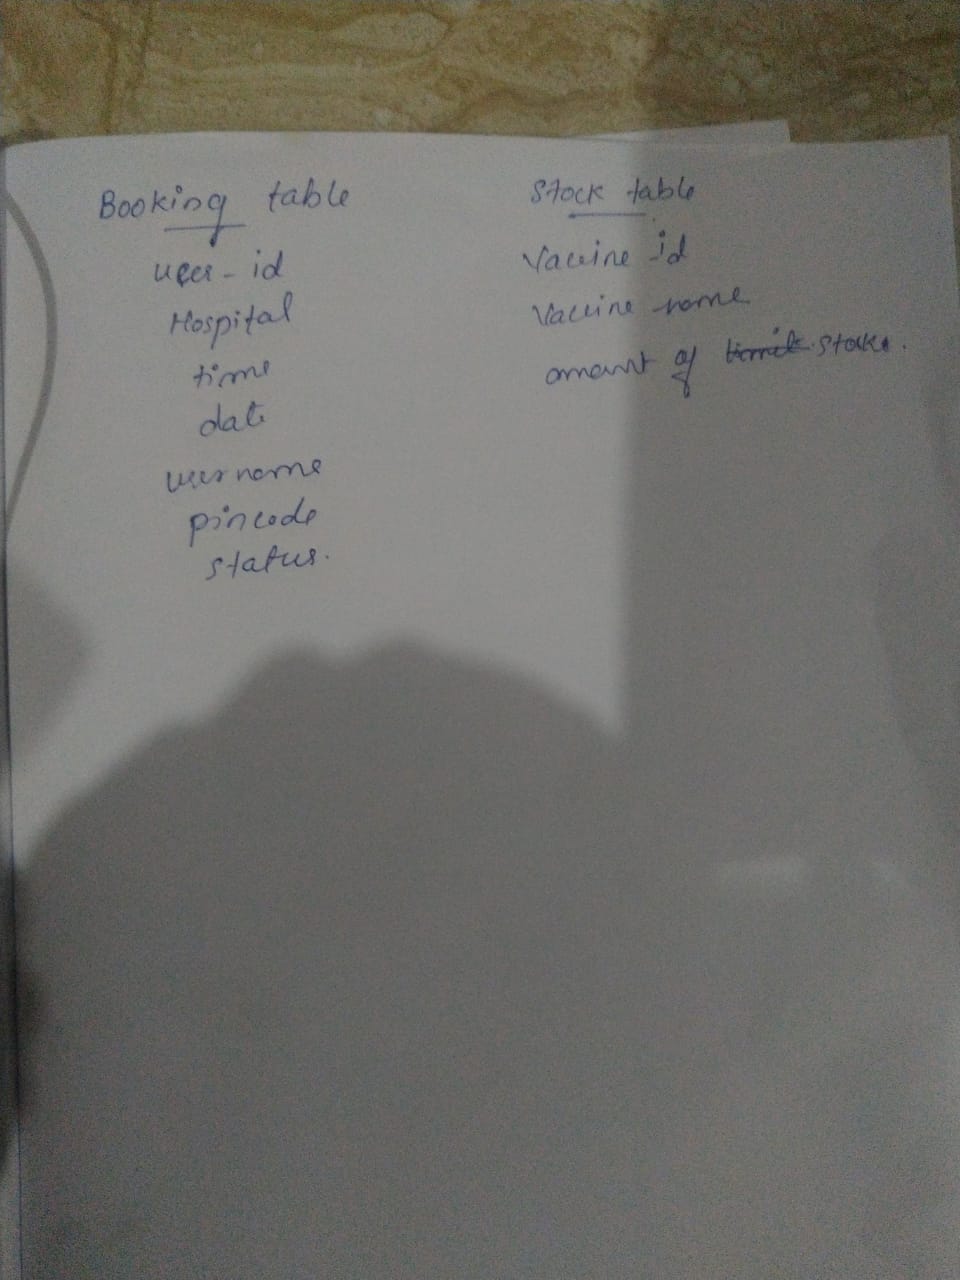 Booking table
user-id
Hospital
time
date
username
pincode
status.
Stock table
Vaccine id
Vaccine name
amount of limit stoke.